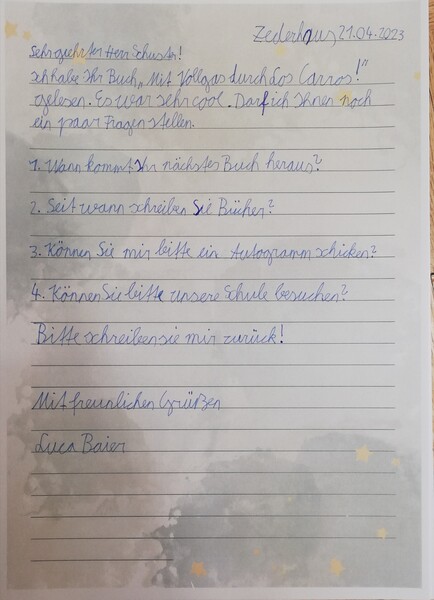 Zederhaus 21.04.2023
Sehr geehrter Herr Schuster!
Ich habe Ihr Buch „Mit Vollgas durch Los Carros!"
gelesen. Es war sehr cool. Darf ich Ihnen noch
ein paar Fragen stellen.
1. Wann kommt Ihr nächstes Buch heraus?
2. Seit wann schreiben Sie Bücher?
3. Können Sie mir bitte ein Autogramm schicken?
4. Können Sie bitte unsere Schule besuchen?
Bitte schreiben sie mir zurück!
Mit freunlichen Grüßen
Luca Baier